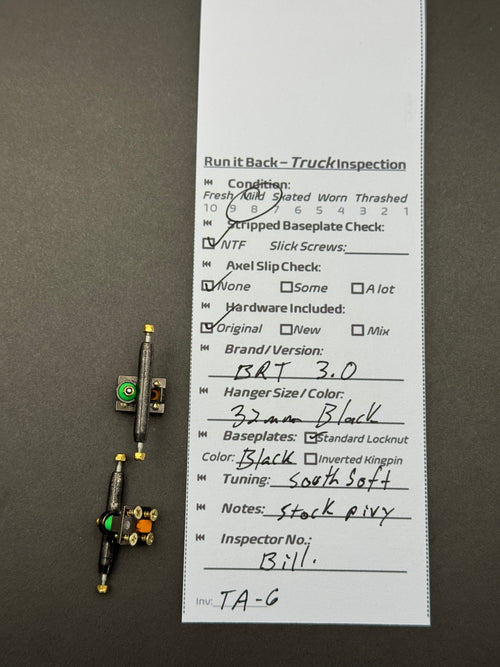 Run it Back – Truck Inspection
Condition:
Fresh Mild Skated Worn Thrashed
10 9 8 7 6 5 4 3 2 1
Stripped Baseplate Check:
NTF Slick Screws:
Axel Slip Check:
None Some A lot
Hardware Included:
Original New Mix
Brand/Version:
BRT 3.0
Hanger Size/Color:
32mm Black
Baseplates: Standard Locknut
Color: Black Inverted Kingpin
Tuning: South Soft
Notes: Stock pivy
Inspector No.:
Bill.
Inv: TA-6